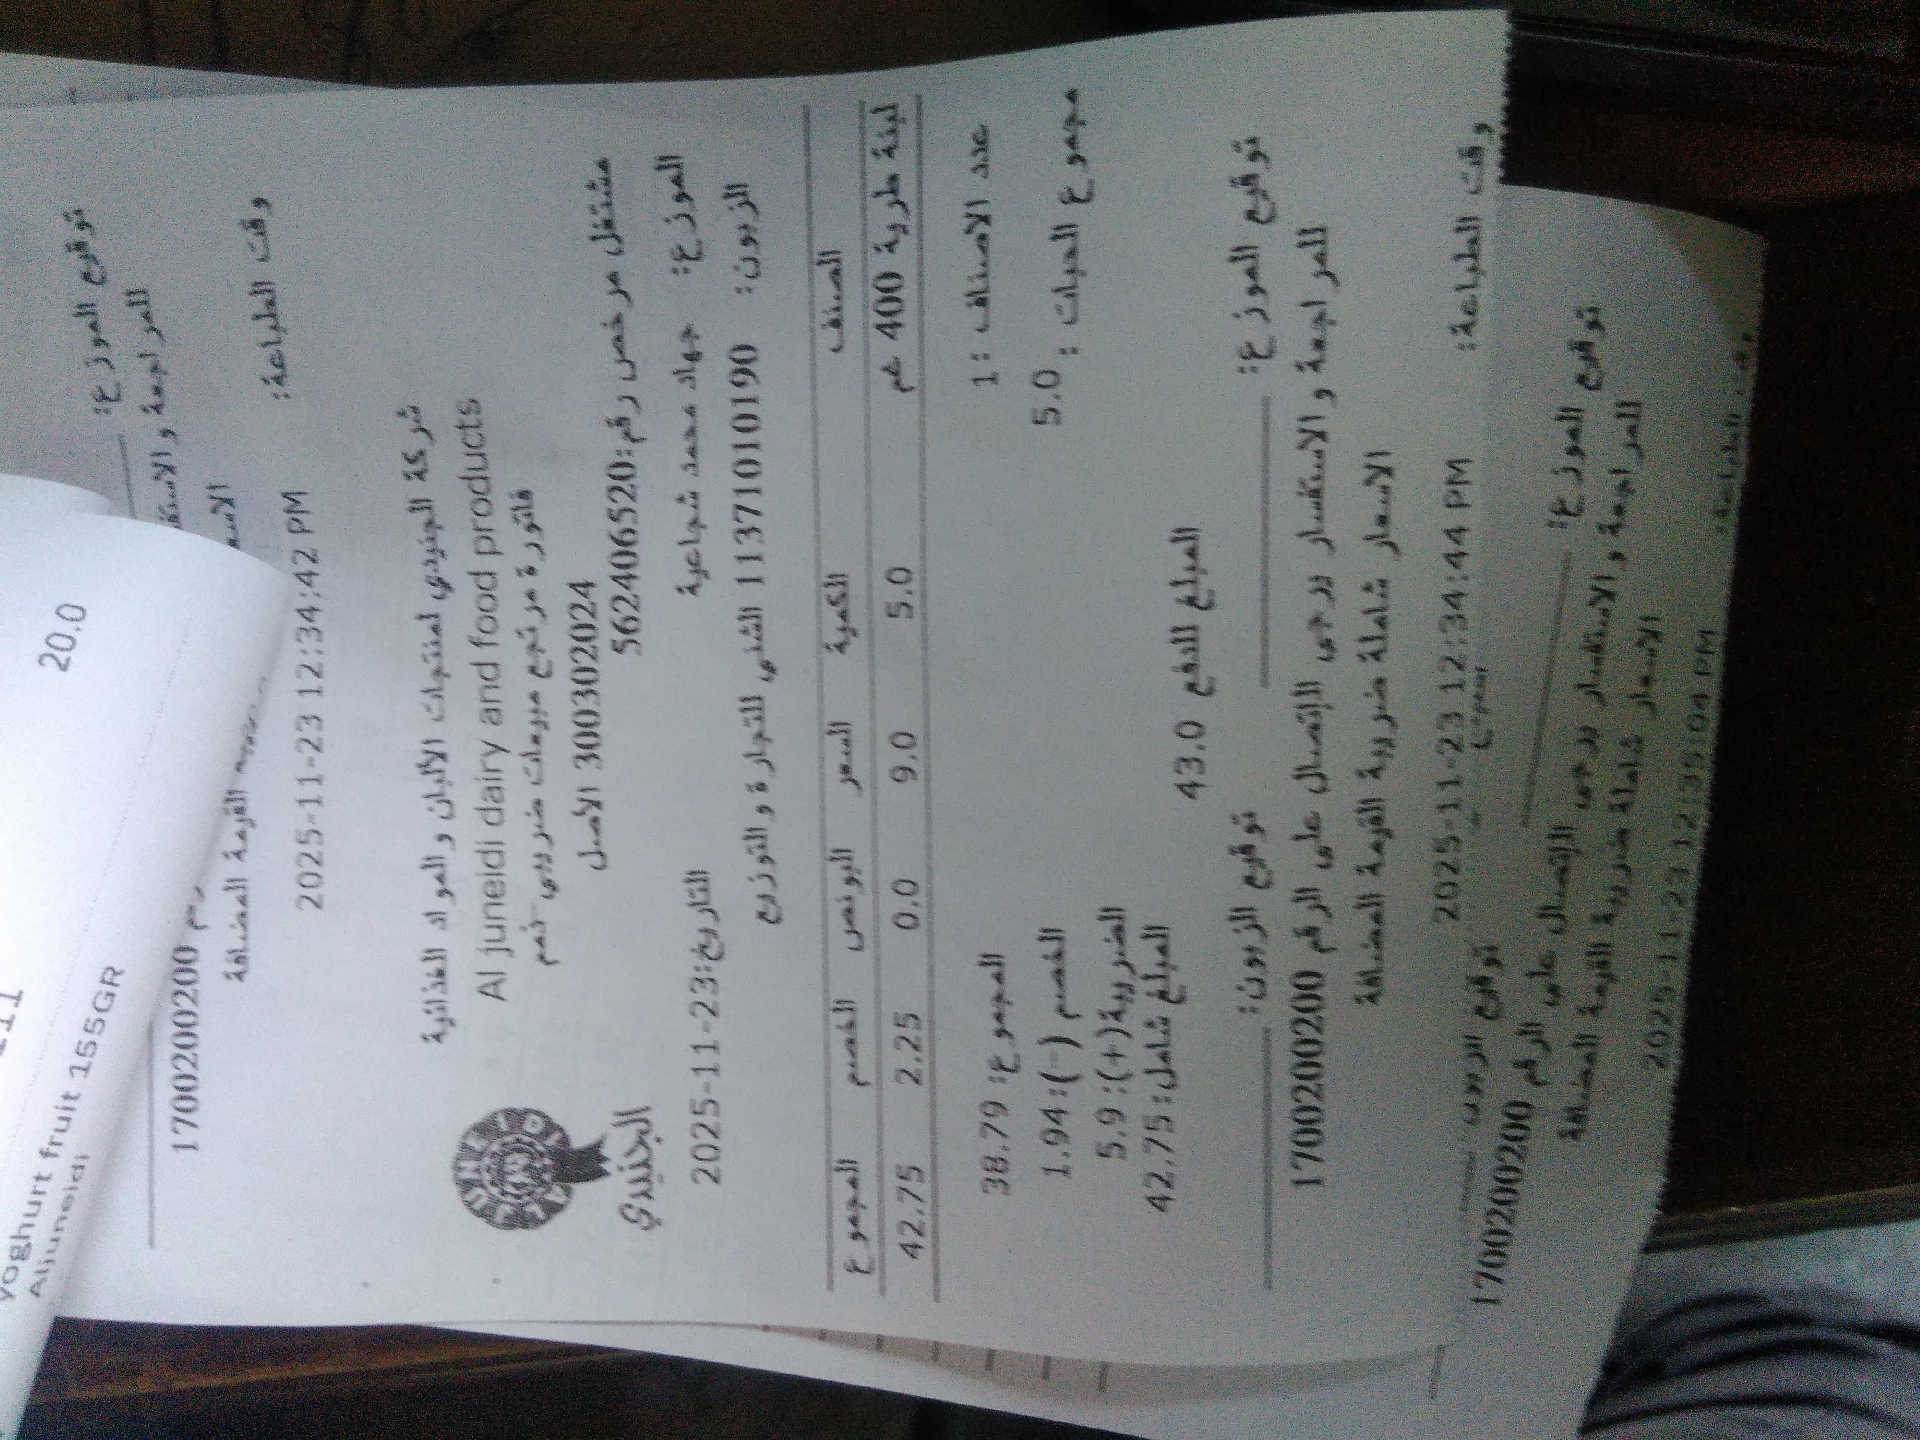 20.0
Yoghurt fruit 155GR
Aljuneidi
توقيع الموزع:
للمراجعة و
1700200200
القيمة المضافة
وقت الطباعة:
2025-11-23 12:34:42 PM
شركة الجنيدي لمنتجات الألبان والمواد الغذائية
Al juneidi dairy and food products
فاتورة مرتجع مبيعات ضريبي-خصم
300302024 الأصل
مشتغل مرخص رقم:562406520
JUNEIDI
الجنيدي
الموزع: جهاد محمد شجاعية
التاريخ:2025-11-23
الزبون: 11371010190 الشني للتجارة والتوزيع
الصنف الكمية السعر البونص الخصم المجموع
لبنة طرية 400 غم 5.0 9.0 0.0 2.25 42.75
عدد الاصناف : 1
المجموع: 38.79
مجموع الحبات : 5.0
الخصم (-): 1.94
الضريبة(+): 5.9
المبلغ شامل: 42.75
المبلغ للدفع 43.0
توقيع الموزع:
توقيع الزبون:
للمراجعة والاستفسار يرجى الإتصال على الرقم 1700200200
الاسعار شاملة ضريبة القيمة المضافة
وقت الطباعة:
2025-11-23 12:34:44 PM
توقيع الموزع:
توقيع الزبون
للمراجعة والاستفسار يرجى الإتصال على الرقم 1700200200
الاسعار شاملة ضريبة القيمة المضافة
2025-11-23 12:35:04 PM